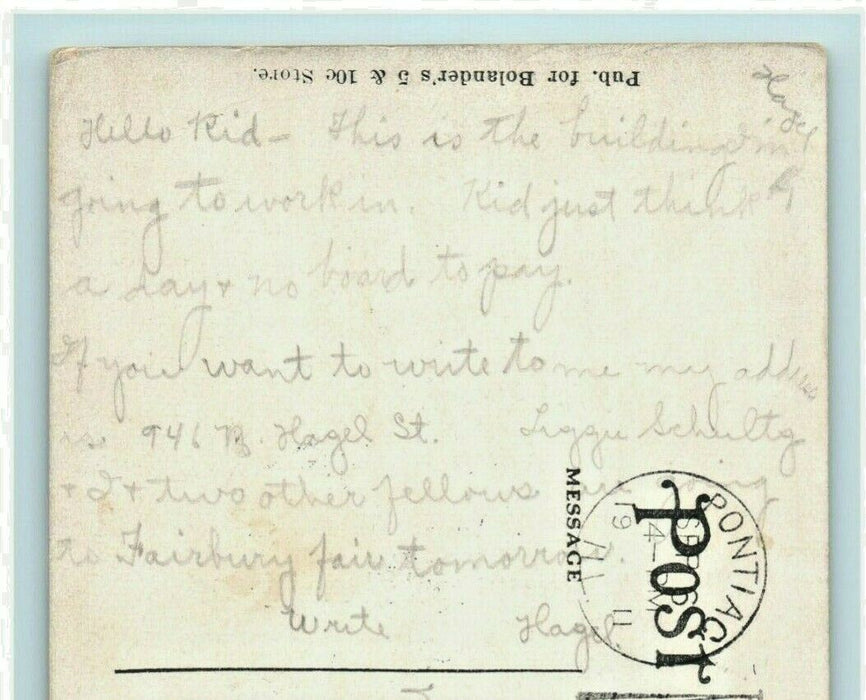 Pub. for Bolander's 5 & 10c Store.
Hello Kid - This is the building I'm
going to work in. Kid just think
a day & no board to pay.
If you want to write to me my address
is 946 N. Hazel St. Schultz
& I & two other fellows are going
to Fairbury fair tomorrow.
Write Hazel
MESSAGE
POST
PONTIAC
SEP
4- M
1911